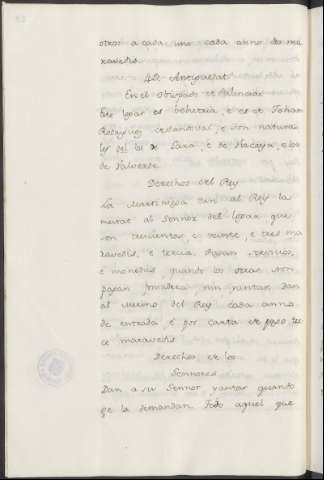 otros a cada uno cada anno dos ma
ravedis.
Antiguedat
En el obispado de Palencia
Este logar es behetria, e es de Johan
Rodriguez de Sandoval, e son natura
les del los de Lara, e de Vizcaya, e los
de Valverde.
Derechos del Rey
La martiniega dan al Rey la
meytat al Sennor del logar que
son trecientos, e veinte, e tres ma
ravedis, e tercia. Pagan servicios,
e monedas, quando los otros. Non
pagan fonsadera nin yantar, dan
al merino del Rey cada anno
de entrada e por carta de pago
ce maravedis
Derechos de los
Sennores
Dan a su Sennor yantar quando
ge la demandan. Todo aquel que